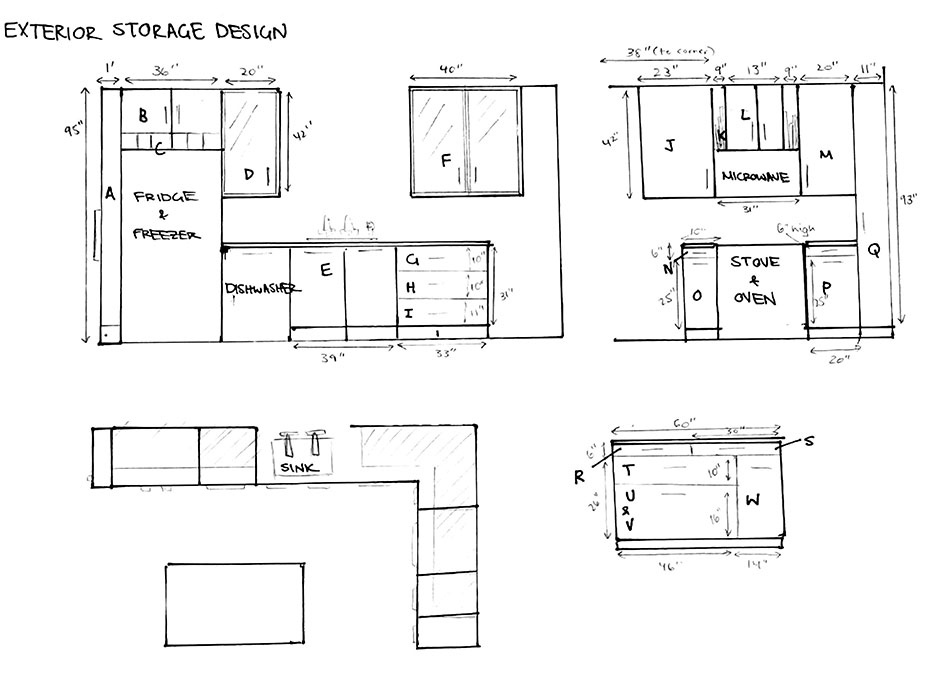 EXTERIOR STORAGE DESIGN
1'
36"
20"
95"
B
C
A
D
42"
FRIDGE
&
FREEZER
DISHWASHER
E
G
H
I
10"
10"
11"
31"
39"
33"
40"
F
38" (to corner)
23"
9"
13"
9"
20"
11"
42"
J
K
L
M
MICROWAVE
31"
93"
10"
6" high
6"
N
25"
O
STOVE
&
OVEN
P
25"
Q
20"
SINK
60"
30"
S
6"
R
T
10"
U
&
V
W
26"
16"
46"
14"